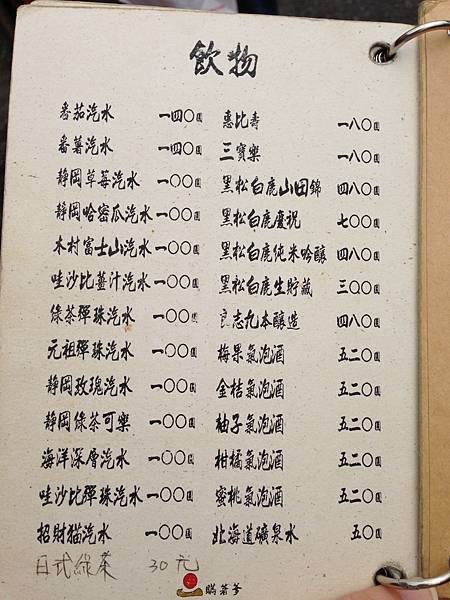 飲物
番茄汽水 一四〇圓
番薯汽水 一四〇圓
靜岡草莓汽水 一〇〇圓
靜岡哈密瓜汽水 一〇〇圓
木村富士山汽水 一〇〇圓
哇沙比薑汁汽水 一〇〇圓
綠茶彈珠汽水 一〇〇圓
元祖彈珠汽水 一〇〇圓
靜岡玫瑰汽水 一〇〇圓
靜岡綠茶可樂 一〇〇圓
海洋深層汽水 一〇〇圓
哇沙比彈珠汽水 一〇〇圓
招財猫汽水 一〇〇圓
日式綠茶 30元
惠比壽 一八〇圓
三寶樂 一八〇圓
黑松白鹿山田錦 四八〇圓
黑松白鹿慶祝 七〇〇圓
黑松白鹿純米吟釀 四八〇圓
黑松白鹿生貯藏 三〇〇圓
良志久本釀造 四八〇圓
梅果氣泡酒 五二〇圓
金桔氣泡酒 五二〇圓
柚子氣泡酒 五二〇圓
柑橘氣泡酒 五二〇圓
蜜桃氣泡酒 五二〇圓
北海道礦泉水 五〇圓